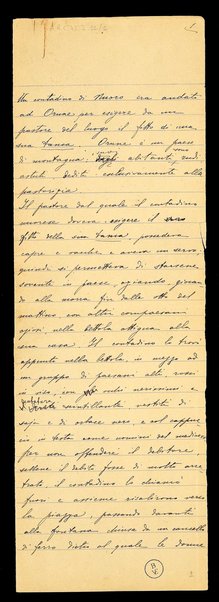 1
Un contadino di Nuoro era andato
ad Orune per esigere da un
pastore del luogo il fitto di una
sua tanca. Orune è un paese
di montagna: abitanti sono
dediti esclusivamente alla
pastorizia.
Il pastore dal quale il contadino
nuorese doveva esigere il
fitto della sua tanca, possedeva
capre e vacche e aveva un servo,
quindi si permetteva di starsene
sovente in paese, ogni giorno
alla morra fin dalle otto del
mattino, con altri compaesani
agiati, nella bettola attigua alla
sua casa. Il contadino lo trovò
appunto nella bettola, in mezzo ad
un gruppo di paesani alti, rossi
in viso, con occhi nerissimi e
scintillante, vestiti di
e di orbace nero, e col cappuccio
in testa come uomini del medioevo.
Per non offendere il debitore,
sebbene il debito fosse di molto arretrato,
il contadino lo chiamò
fuori e assieme risalirono verso
la piazza, passando davanti
alla fontana chiusa da un cancello
di ferro dietro al quale le donne